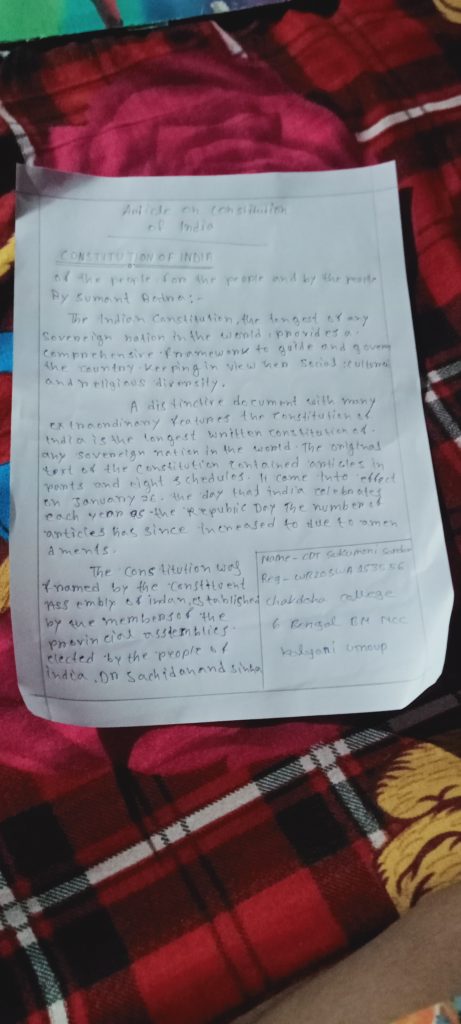 Article on constitution
of India
CONSTITUTION OF INDIA
of the people, for the people and by the people
By Sumant Batra:-
The Indian Constitution, the longest of any
Sovereign nation in the world, provides a
comprehensive framework to guide and govern
the country keeping in view her social, cultural
and religious diversity.
A distinctive document with many
extraordinary features the constitution of
India is the longest written constitution of
any sovereign nation in the world. The original
text of the constitution contained articles in
parts and eight schedules. It came into effect
on January 26. the day that india celebrates
each year as the Republic Day The number of
articles has since increased to due to amen
d ments.
The constitution was
framed by the constituent
Ass embly of indan, established
by the members of the
provincial assemblies.
elected by the people of
india. DR Sachidanand sinha
Name - CDT
Reg -
Chakdaha college
6 Bengal BN NCC
kalyani Group